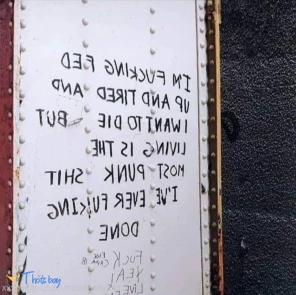 I'M FUCKING FED
UP AND TIRED AND
I WANT TO DIE BUT
LIVING IS THE
MOST PUNK SHIT
I'VE EVER FU/KING
DONE
FUCK
YEA!
Thots boy